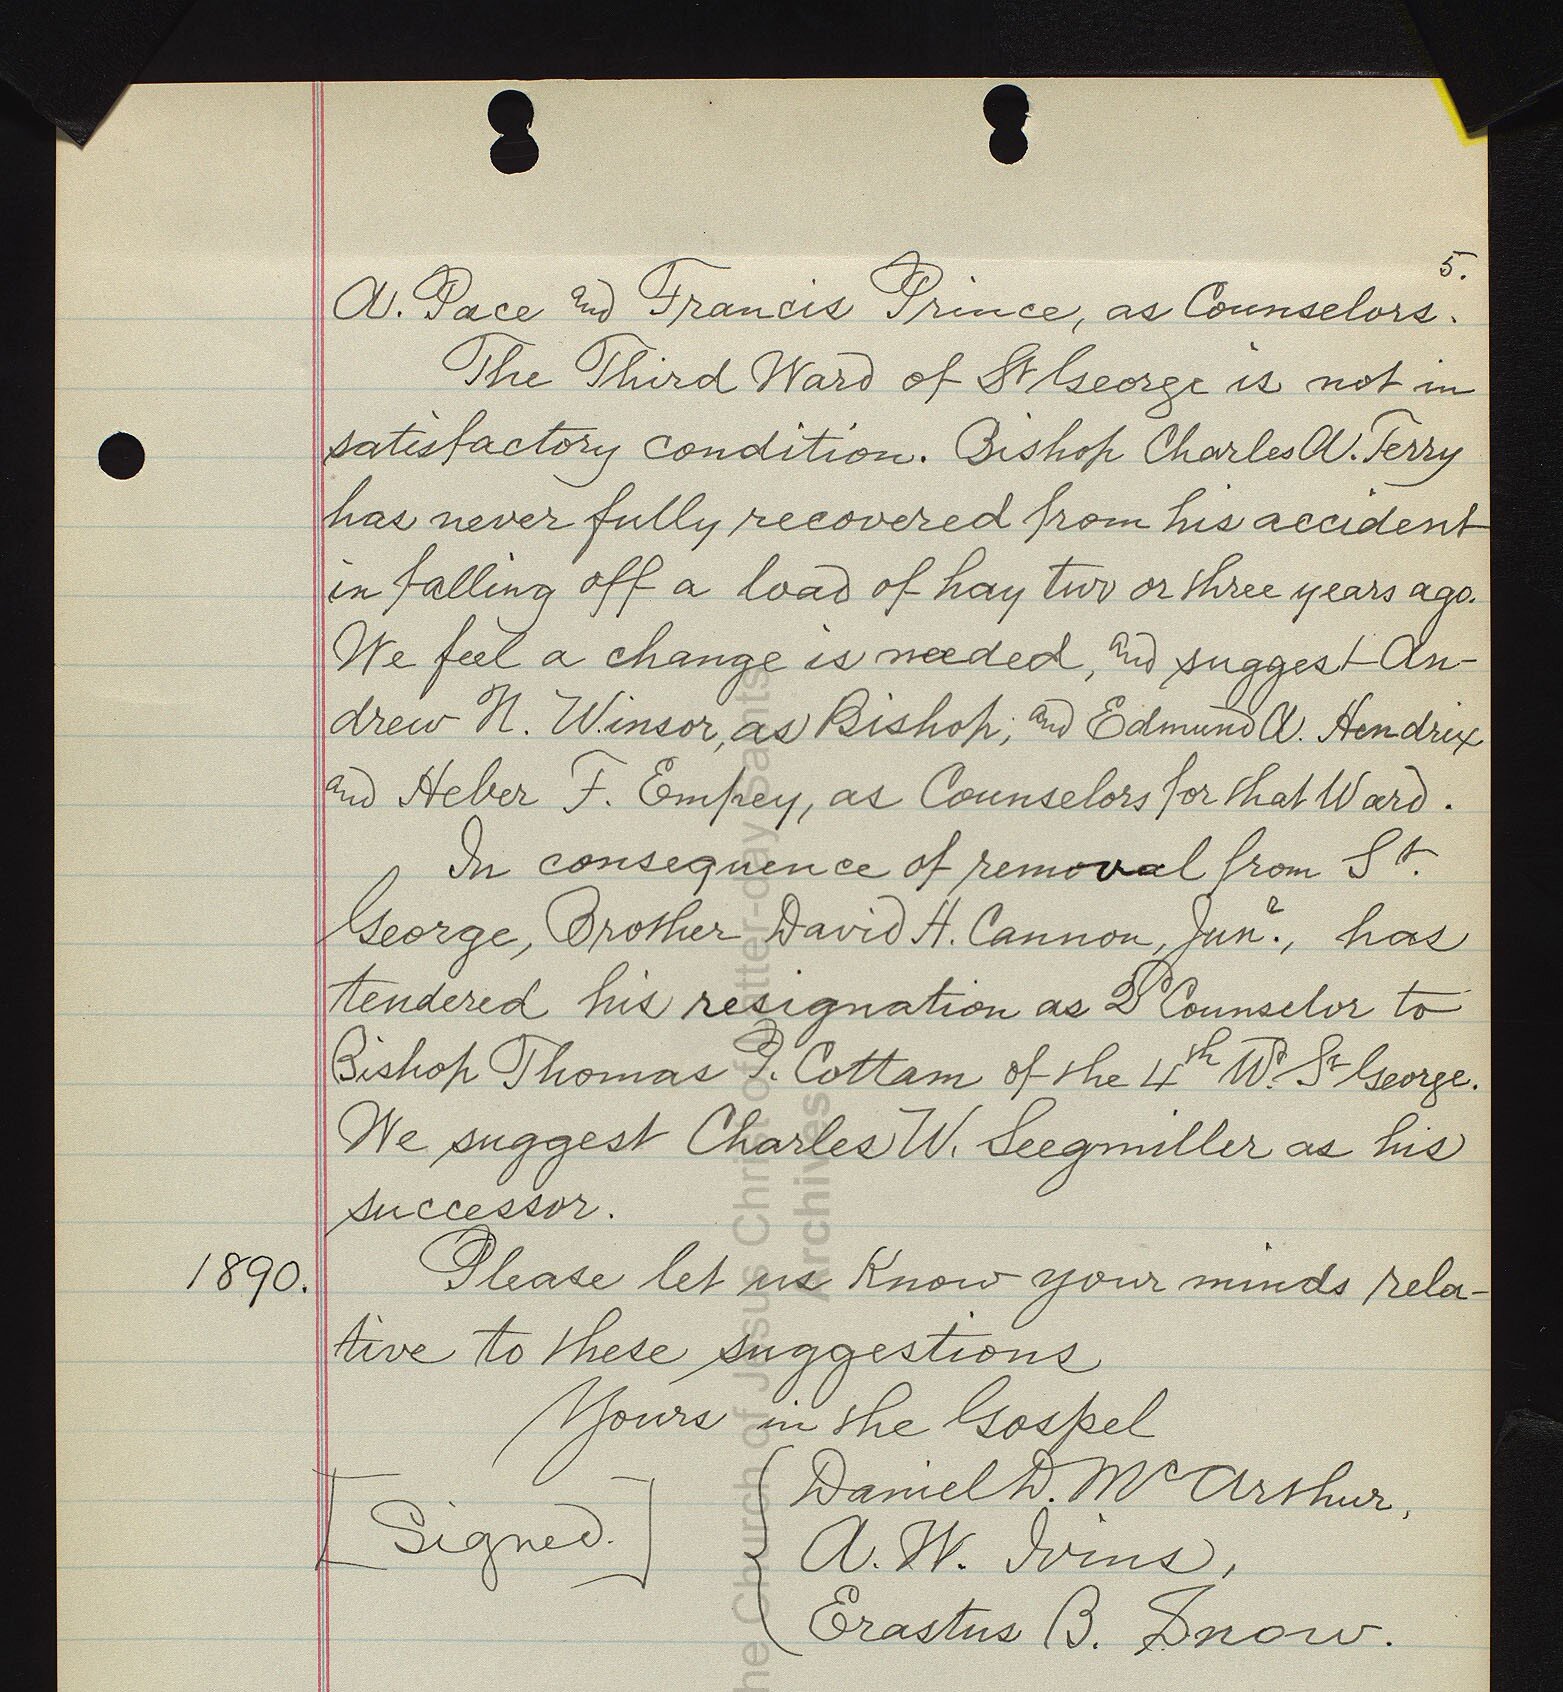 5.
A. Pace and Francis Prince, as Counselors.
The Third Ward of St George is not in
satisfactory condition. Bishop Charles A. Terry
has never fully recovered from his accident
in falling off a load of hay two or three years ago.
We feel a change is needed, and suggest An-
drew N. Winsor, as Bishop; and Edmund A. Hendrix
and Heber F. Empey, as Counselors for that Ward.
In consequence of removal from St.
George, Brother David H. Cannon, Junr., has
tendered his resignation as 2d Counselor to
Bishop Thomas P. Cottam of the 4th Wd. St George.
We suggest Charles W. Seegmiller as his
successor.
1890. Please let us know your minds rela-
tive to these suggestions
Yours in the Gospel
[Signed.] Daniel D. McArthur,
A. W. Ivins,
Erastus B. Snow.
he Church of Jesus Christ of Latter-day Saints
Archives